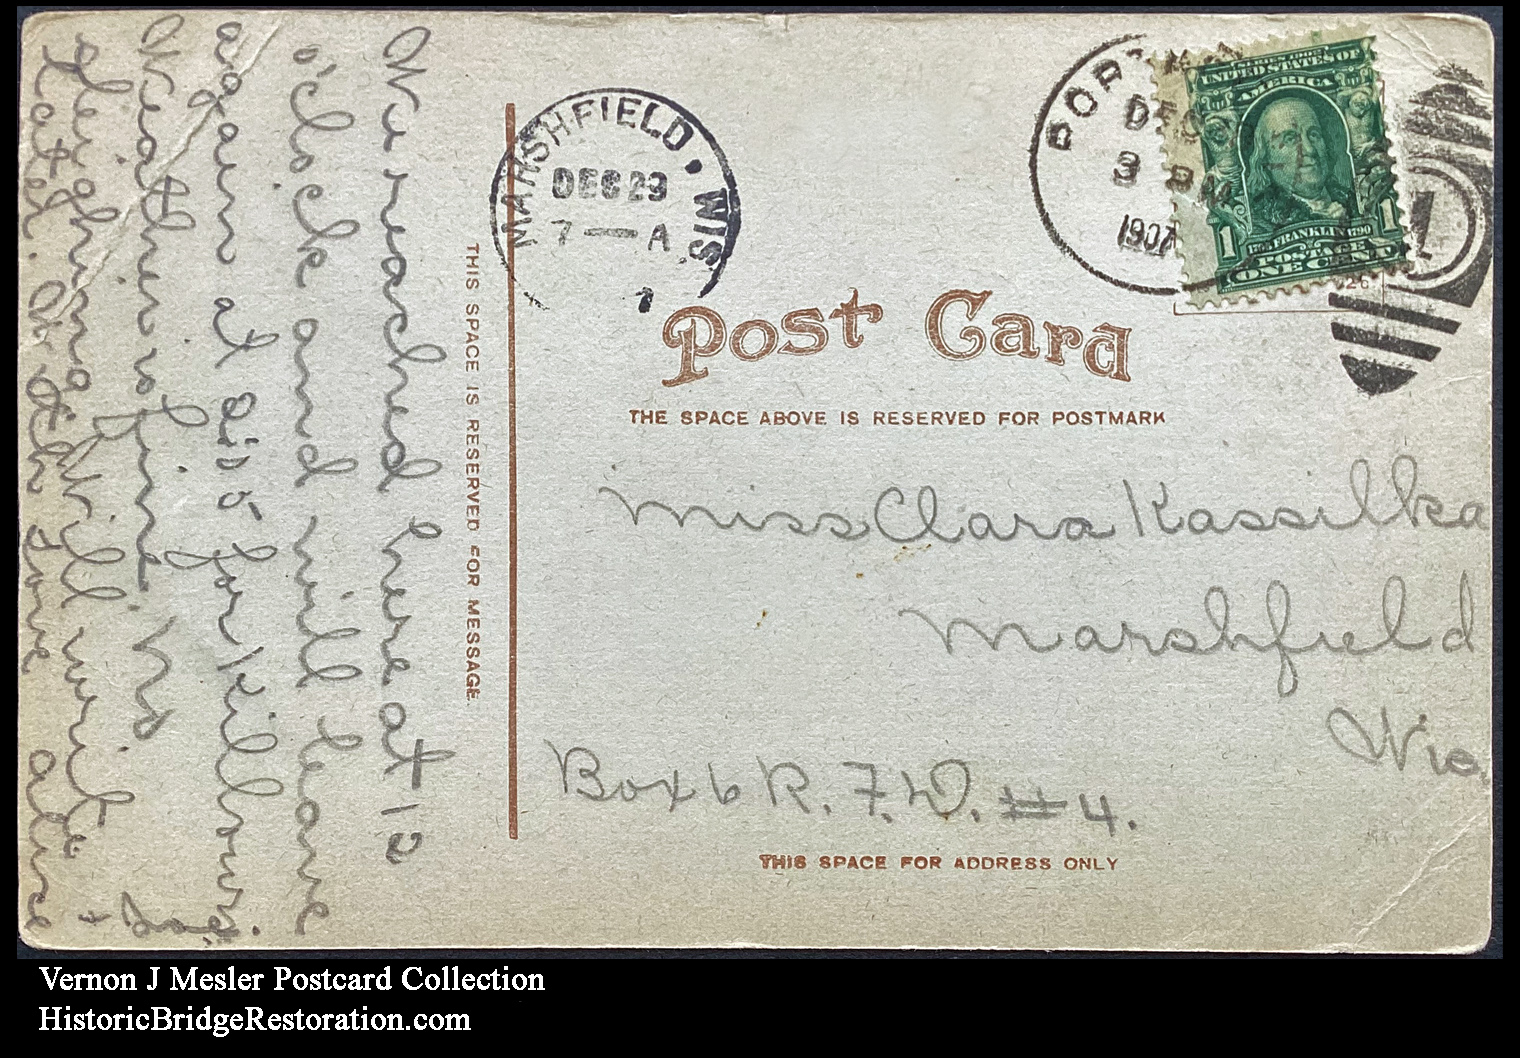 We reached here at 12
o'clock and will leave
again at 2:20 for Kilbourn.
Weather is fine. No
sleighing. Will write
later. With love Alice
+ Joe
THIS SPACE IS RESERVED FOR MESSAGE
MARSHFIELD. WIS
DEC 29
7—A
POR
DEC
3 PM
1907
SERIES 1902
UNITED STATES OF
AMERICA
1706 FRANKLIN 1790
POSTAGE
1 ONE CENT 1
1
Post Card
THE SPACE ABOVE IS RESERVED FOR POSTMARK
Miss Clara Kassilka
Marshfield
Wis.
Box 6 R.F.D. #4.
THIS SPACE FOR ADDRESS ONLY
Vernon J Mesler Postcard Collection
HistoricBridgeRestoration.com